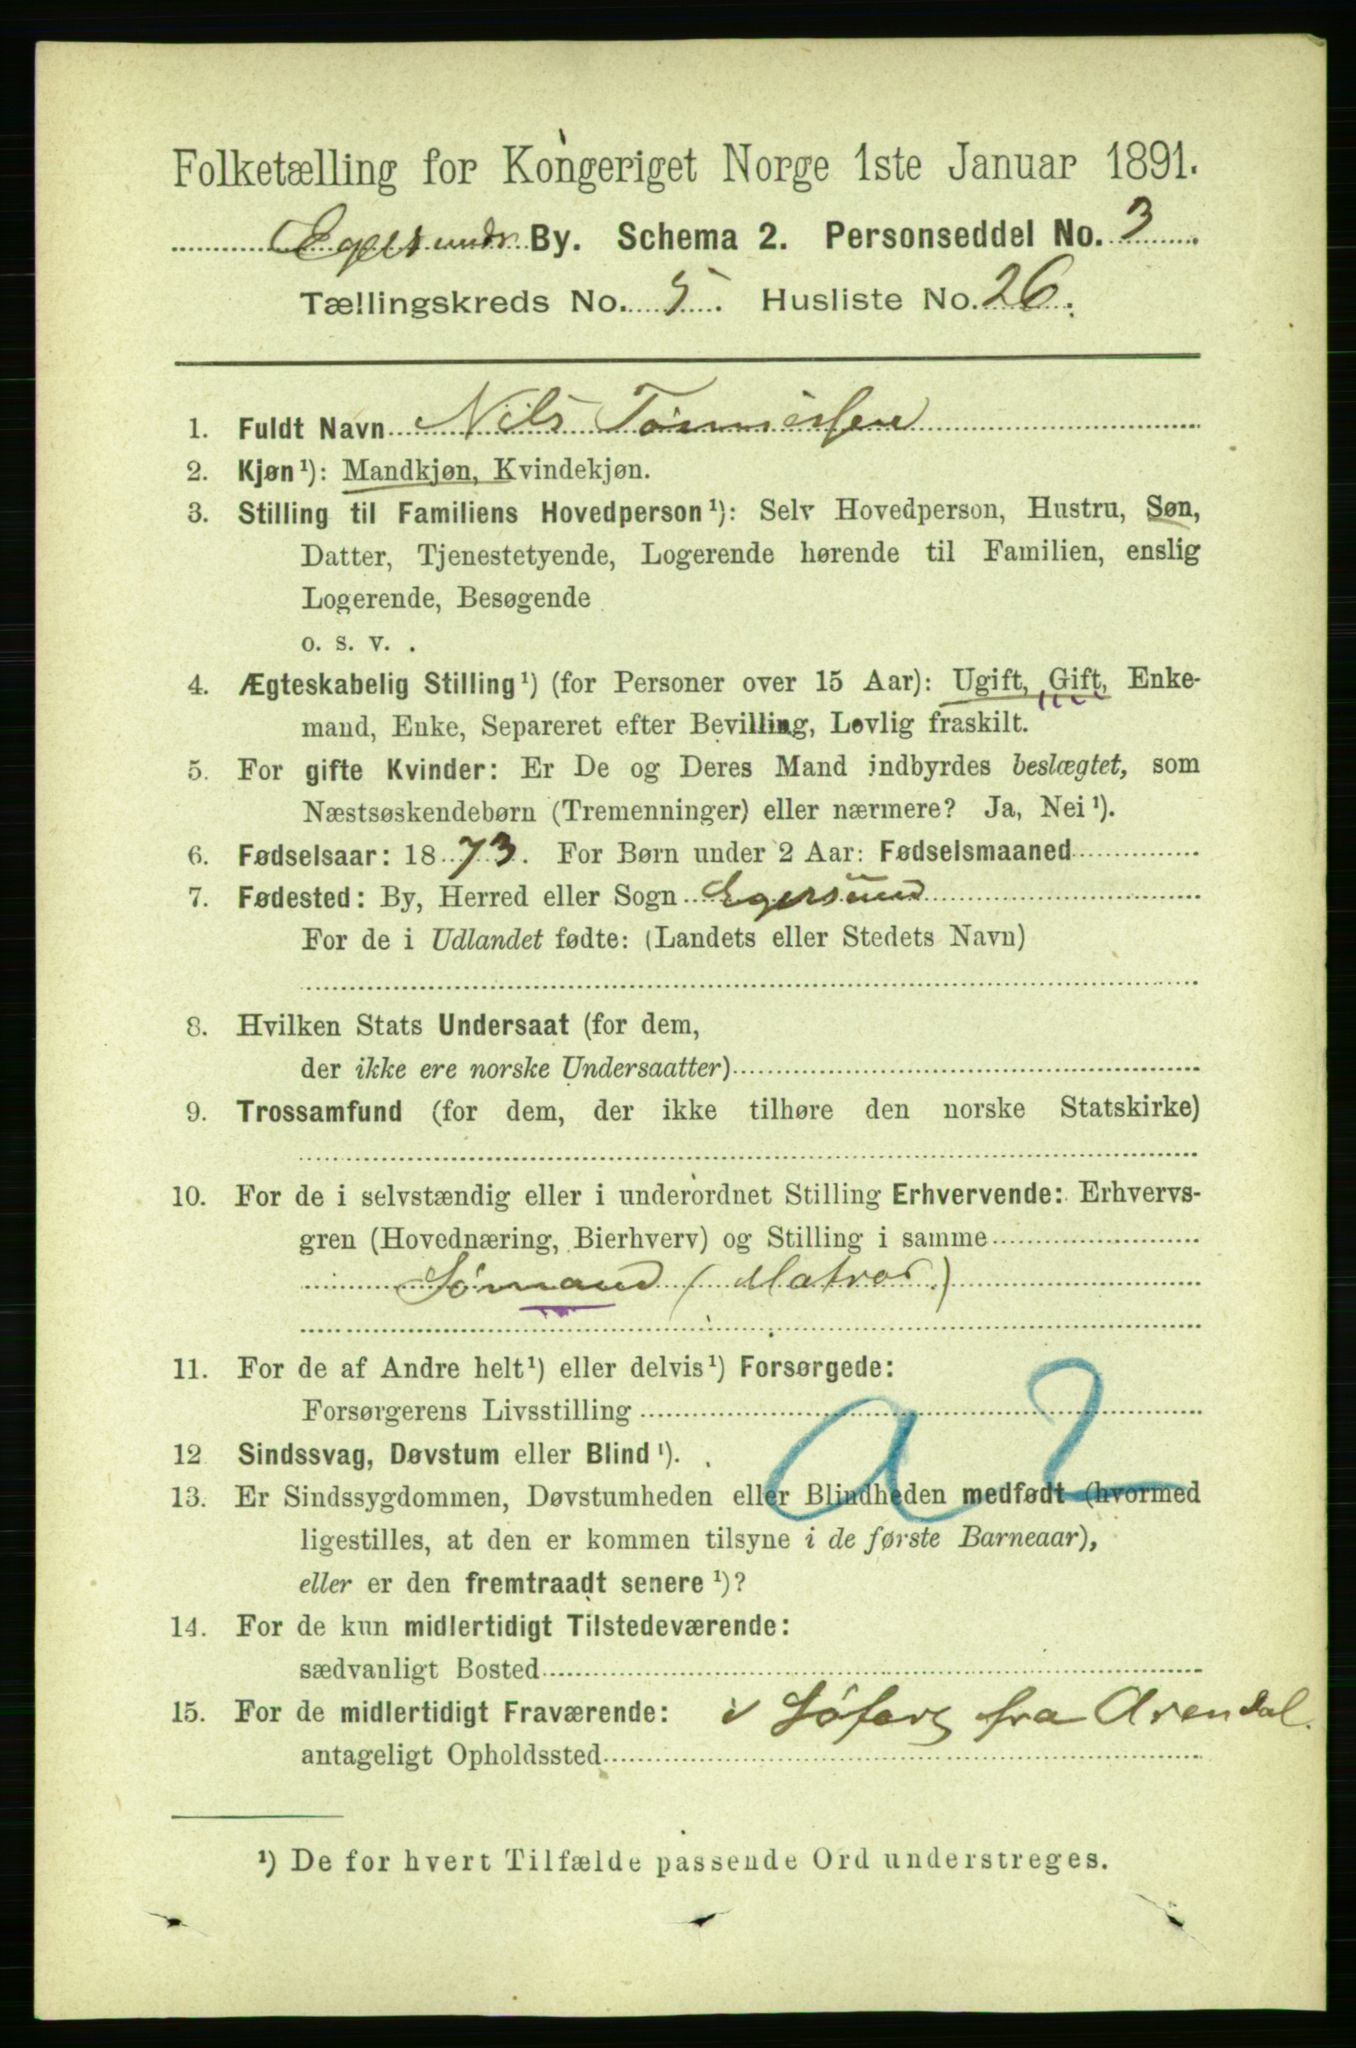 Folketælling for Kongeriget Norge 1ste Januar 1891.
Egersunds By. Schema 2. Personseddel No. 3
Tællingskreds No. 5. Husliste No. 26.
1. Fuldt Navn Nils Tønnessen
2. Kjøn¹): Mandkjøn, Kvindekjøn.
3. Stilling til Familiens Hovedperson¹): Selv Hovedperson, Hustru, Søn,
Datter, Tjenestetyende, Logerende hørende til Familien, enslig
Logerende, Besøgende
o. s. v. .
4. Ægteskabelig Stilling¹) (for Personer over 15 Aar): Ugift, Gift, Enke-
mand, Enke, Separeret efter Bevilling, Lovlig fraskilt.
5. For gifte Kvinder: Er De og Deres Mand indbyrdes beslægtet, som
Næstsøskendebørn (Tremenninger) eller nærmere? Ja, Nei¹).
6. Fødselsaar: 1873. For Børn under 2 Aar: Fødselsmaaned
7. Fødested: By, Herred eller Sogn Egersund
For de i Udlandet fødte: (Landets eller Stedets Navn)
8. Hvilken Stats Undersaat (for dem,
der ikke ere norske Undersaatter)
9. Trossamfund (for dem, der ikke tilhøre den norske Statskirke)
10. For de i selvstændig eller i underordnet Stilling Erhvervende: Erhvervs-
gren (Hovednæring, Bierhverv) og Stilling i samme
Sømand (Matros)
11. For de af Andre helt¹) eller delvis¹) Forsørgede:
Forsørgerens Livsstilling
a 2
12 Sindssvag, Døvstum eller Blind¹).
13. Er Sindssygdommen, Døvstumheden eller Blindheden medfødt (hvormed
ligestilles, at den er kommen tilsyne i de første Barneaar),
eller er den fremtraadt senere¹)?
14. For de kun midlertidigt Tilstedeværende:
sædvanligt Bosted
15. For de midlertidigt Fraværende: i Søfart fra Arendal.
antageligt Opholdssted
¹) De for hvert Tilfælde passende Ord understreges.